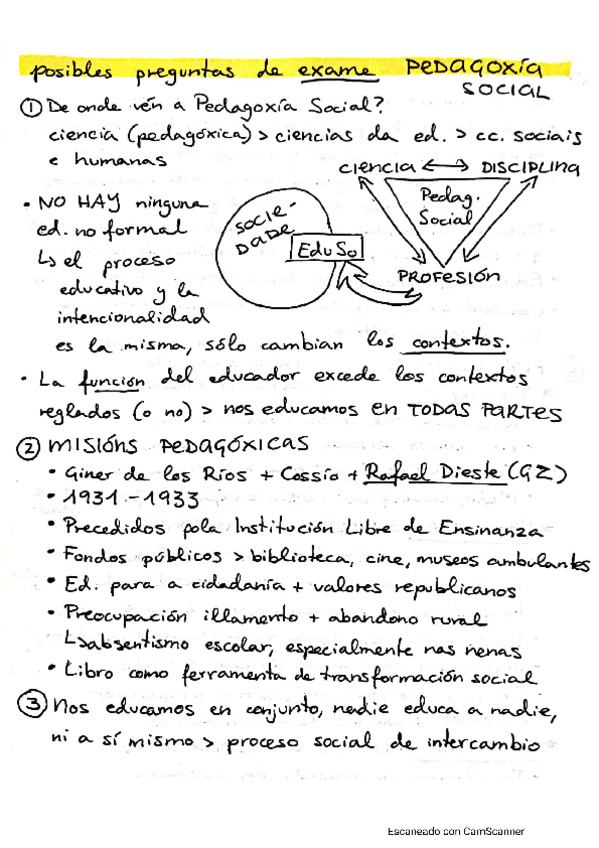 posibles preguntas de exame PEDAGOXÍA
SOCIAL
① De onde vén a Pedagoxía Social?
ciencia (pedagóxica) > ciencias da ed. > cc. sociais
e humanas
ciencia ↔ DISCIPLINA
Pedag.
Social
PROFESIÓN
SOCIE-
DADE
EduSo
• NO HAY ninguna
ed. no formal
↳ el proceso
educativo y la
intencionalidad
es la misma, sólo cambian los contextos.
• La función del educador excede los contextos
reglados (o no) > nos educamos en TODAS PARTES
② MISIÓNS PEDAGÓXICAS
• Giner de los Ríos + Cossío + Rafael Dieste (GZ)
• 1931 - 1933
• Precedidos pola Institución Libre de Ensinanza
• Fondos públicos > biblioteca, cine, museos ambulantes
• Ed. para a cidadanía + valores republicanos
• Preocupación illamento + abandono rural
↳ absentismo escolar, especialmente nas nenas
• Libro como ferramenta de transformación social
③ Nos educamos en conjunto, nadie educa a nadie,
ni a sí mismo > proceso social de intercambio
Escaneado con CamScanner